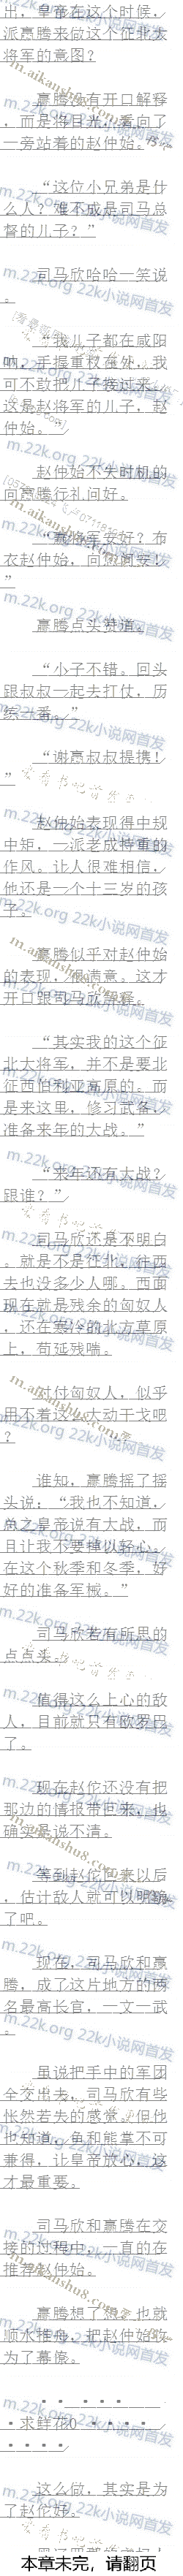 出，皇帝在这个时候，
派嬴腾来做这个征北大
将军的意图？
嬴腾没有开口解释
，而是将目光，看向了
一旁站着的赵仲始。
“这位小兄弟是什
么人？难不成是司马总
督的儿子？”
司马欣哈哈一笑说
。
“我儿子都在咸阳
呐，手握重权在外，我
可不敢把儿子接过来。
这是赵将军的儿子，赵
仲始。”
赵仲始不失时机的
向嬴腾行礼问好。
“嬴将军安好？布
衣赵仲始，向你问安！
”
嬴腾点头赞道。
“小子不错。回头
跟叔叔一起去打仗，历
练一番。”
“谢嬴叔叔提携！
”
赵仲始表现得中规
中矩，一派老成持重的
作风。让人很难相信，
他还是一个十三岁的孩
子。
嬴腾似乎对赵仲始
的表现，很满意。这才
开口跟司马欣解释。
“其实我的这个征
北大将军，并不是要北
征西伯利亚高原的。而
是来这里，修习武备，
准备来年的大战。”
“来年还有大战？
跟谁？”
司马欣还是不明白
。就是不是征北，往西
去也没多少人哪。西面
现在就是残余的匈奴人
，还在寒冷的北方草原
上，苟延残喘。
对付匈奴人，似乎
用不着这么大动干戈吧
？
谁知，嬴腾摇了摇
头说：“我也不知道，
总之皇帝说有大战，而
且让我不要掉以轻心。
在这个秋季和冬季，好
好的准备军械。”
司马欣若有所思的
点点头。
值得这么上心的敌
人，目前就只有欧罗巴
了。
现在赵佗还没有把
那边的情报带回来，也
确实是说不清。
等到赵佗回来以后
，估计敌人就可以明确
了吧。
现在，司马欣和嬴
腾，成了这片地方的两
名最高长官，一文一武
。
虽说把手中的军团
全交出去，司马欣有些
怅然若失的感觉。但他
也知道，鱼和熊掌不可
兼得，让皇帝放心，这
才最重要。
司马欣和嬴腾在交
接的过程中，一直的在
推荐赵仲始。
嬴腾想了想，也就
顺水推舟，把赵仲始收
为了幕僚。
·求鲜花0
这么做，其实是为
了赵佗好。
本章未完，请翻页